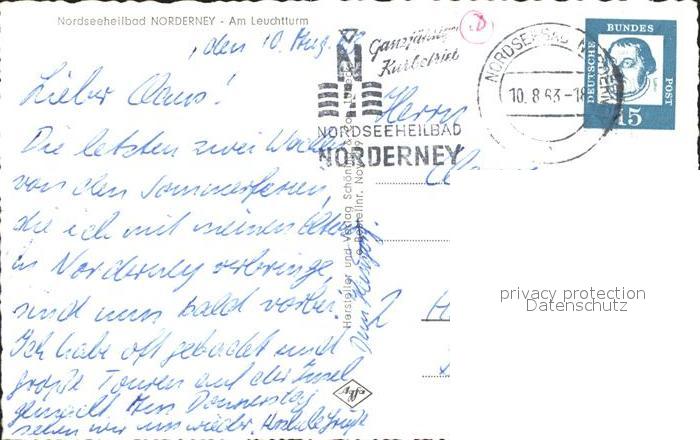 Nordseeheilbad NORDERNEY - Am Leuchtturm
, den 10. Aug. 63
Lieber Claus!
Die letzten zwei Wochen
von den Sommerferien,
die ich mit meinen Eltern
in Norderney verbringe,
sind nun bald vorbei.
Ich habe oft gebadet und
große Touren auf der Insel
gemacht. Am Donnerstag
sehen wir uns wieder. Herzliche Grüße
Dein
Ganzjähriger
Kurbetrieb
N
NORDSEEHEILBAD
NORDERNEY
NORDSEEBAD NORDERNEY
10.8.63-18
DEUTSCHE
BUNDES
POST
15
Herrn
2 H
Hersteller und Verlag Schöning &
Bestellnr. Nor
Agfa
privacy protection
Datenschutz